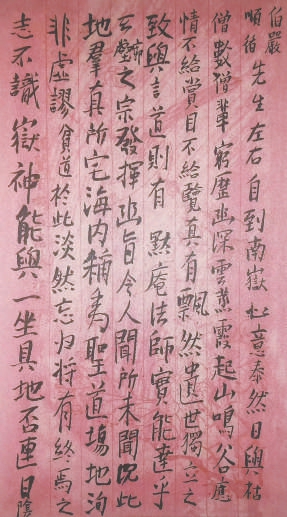 伯嚴
順循 先生左右自到南嶽意泰然日與枯
僧數僧輩窮歷幽深雲蒸霞起山鳴谷應
情不給賞目不給覽真有飄然遺世獨立之
致與言道則有 默庵法師實能達乎
之宗發揮幽旨令人聞所未聞況此
地羣真所宅海內稱為聖道場地洵
非虛謬貧道於此淡然忘归将有終焉之
志不識嶽神能與一坐具地否連日陰